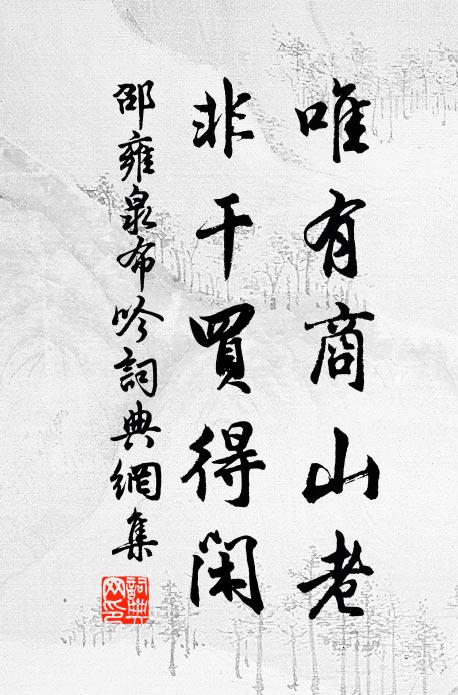 唯有商山老
非干買得閑
邵雍泉布吟詞典網集
詞典